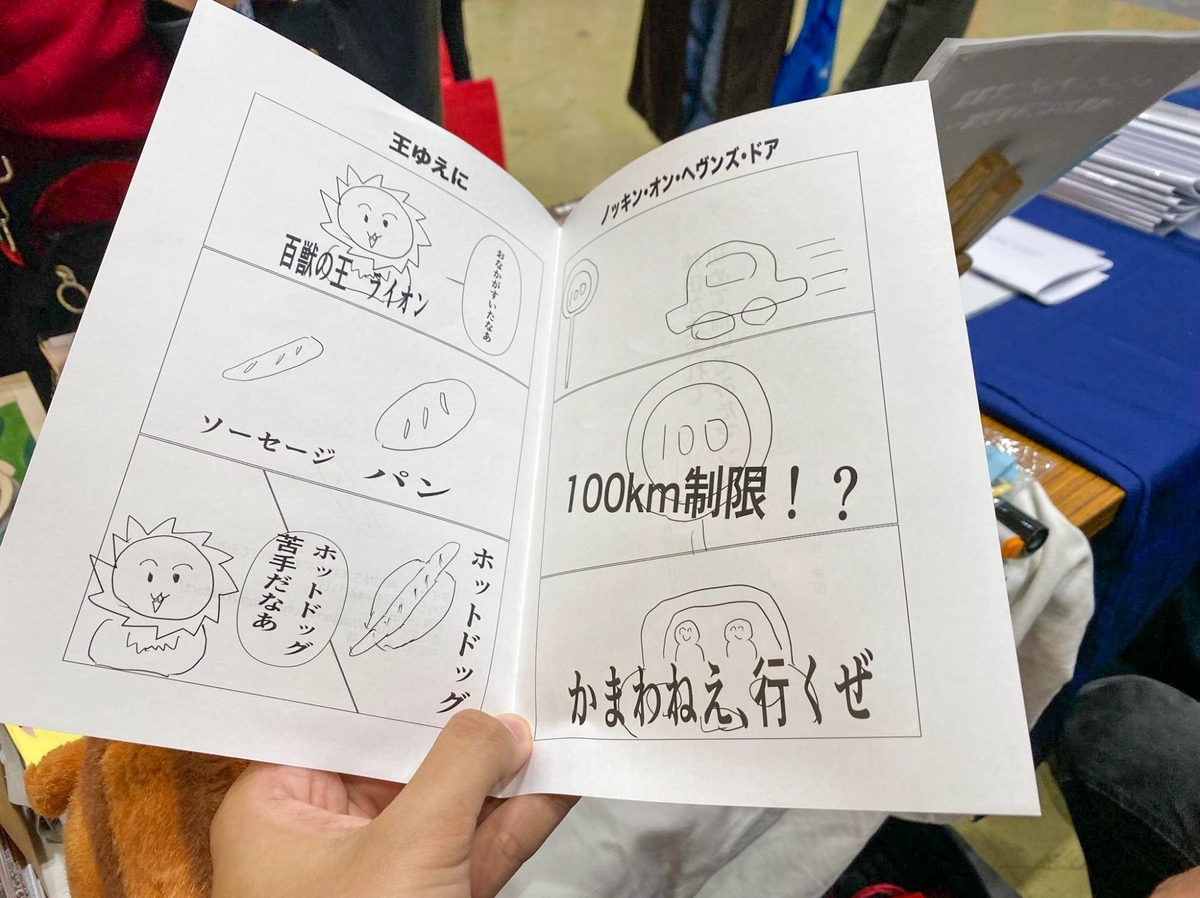 王ゆえに
おなかがすいたなあ
百獣の王 ライオン
ソーセージ
パン
ホットドッグ
ホットドッグ
苦手だなあ
ノッキン・オン・ヘヴンズ・ドア
100
100
100km制限！？
かまわねえ、行くぜ